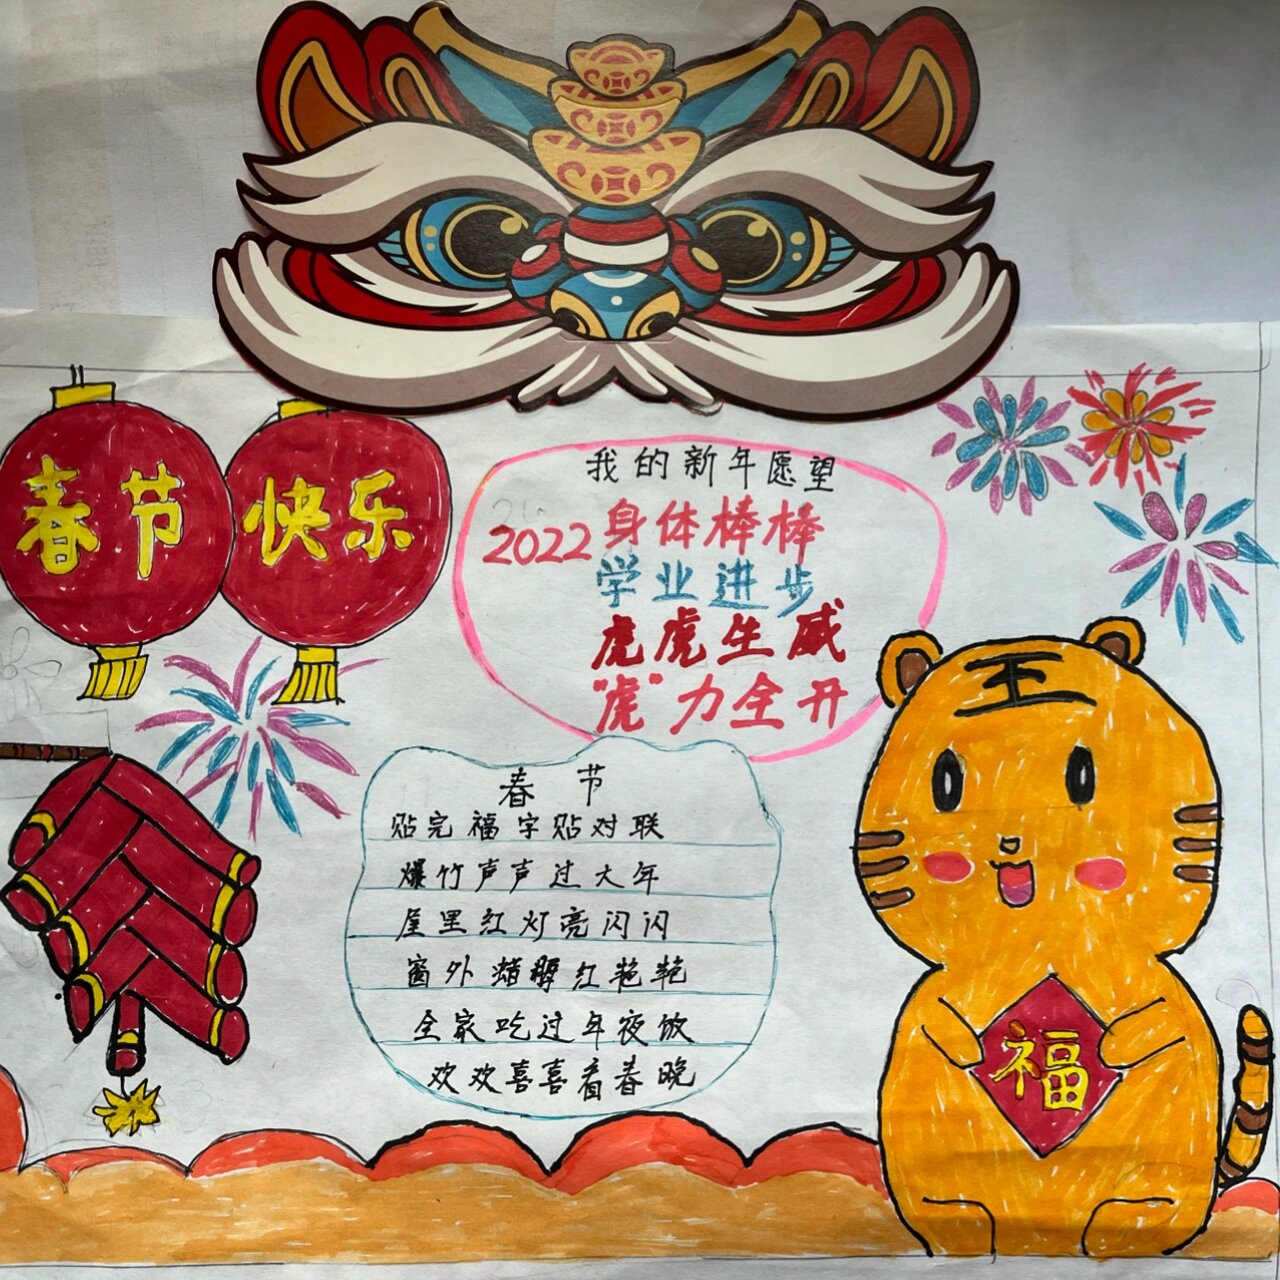 春节
快乐
我的新年愿望
2022身体棒棒
学业进步
虎虎生威
"虎"力全开
王
春节
贴完福字贴对联
爆竹声声过大年
屋里红灯亮闪闪
窗外 红艳艳
全家吃过年夜饭
欢欢喜喜看春晚
福